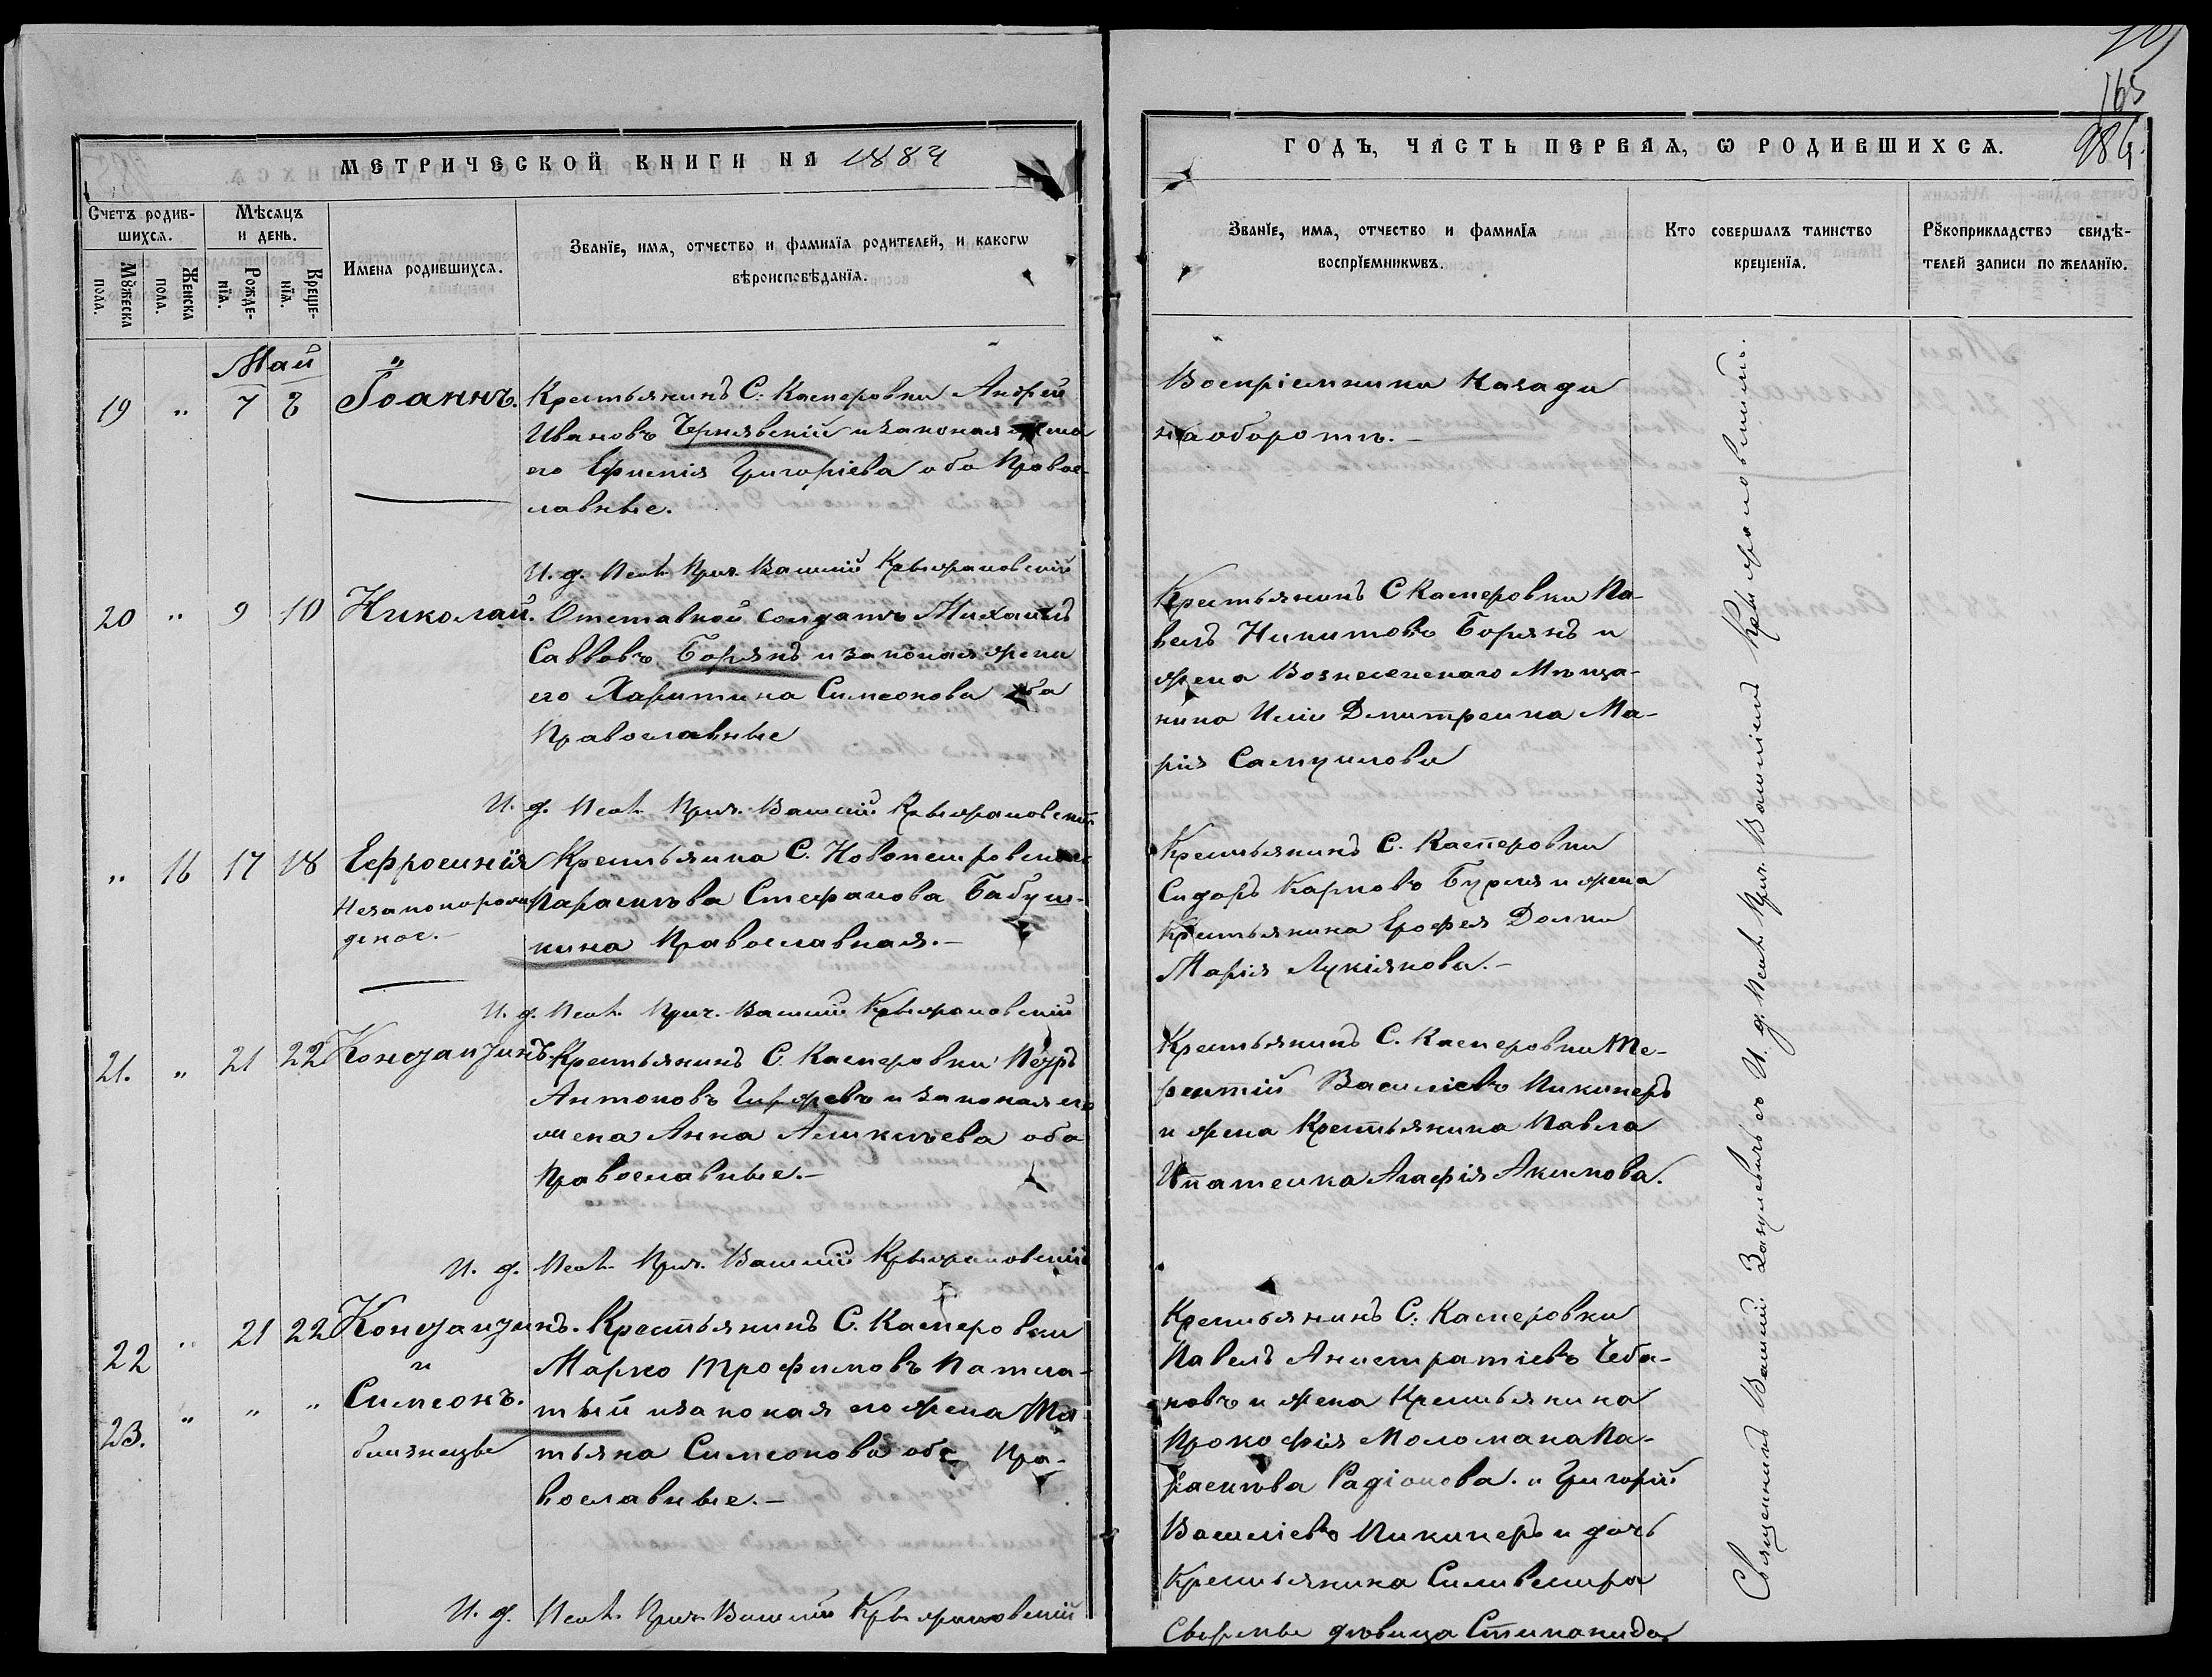 165
984.
МЕТРИЧЕСКОЙ КНИГИ НА 1884
ГОДЪ, ЧАСТЬ ПЕРВАЯ, Ѡ РОДИВШИХСЯ.
Счетъ родив-
шихся.
Мѣсяцъ
и день.
Мꙋжеска
пола.
Женска
пола.
Рожде-
нїя.
Креще-
нїя.
Имена родившихся.
Званїе, имя, отчество и фамилїя родителей, и какогѡ
вѣроисповѣданїя.
Званїе, имя, отчество и фамилїя
воспрїемникѡвъ.
Кто совершалъ таинство
крещенїя.
Рꙋкоприкладство свидѣ-
телей записи по желанїю.
Май
19 " 7 8 Іоаннъ.
Крестьянинъ С. Касперовки Андрей
Ивановъ Чернявскій и законая жена
его Ефимія Григоріева оба Правос-
лавные.
Воспріемники Назади
на оборотъ.
И. д. Псал. Прич. Василій Крыжановскій
20 " 9 10 Николай.
Отставной солдатъ Михаилъ
Савовъ Борянъ и законая жена
его Харитина Симеонова оба
Православные
Крестьянинъ С Касперовки Па-
велъ Никитовъ Борянъ и
жена Вознесенскаго Мѣща-
нина Иліи Дмитренка Ма-
рія Самуилова
И. д. Псал. Прич. Василій Крыжановскій
" 16 17 18 Ефросинія
Незаконорож
деное.-
Крестьянка С. Новопетровскаго
Параскѣва Стефанова Бабуш-
кина Православная.-
Крестьянинъ С. Касперовки
Сидоръ Карповъ Бурля и жена
Крестьянина Ерофея Долки
Марія Лукіянова.-
И. д. Псал. Прич. Василій Крыжановскій
21. " 21 22 Константинъ.
Крестьянинъ С. Касперовки Петръ
Антоновъ Гиржевъ и законая его
жена Анна Алексѣева оба
Православные.-
Крестьянинъ С. Касперовки Те-
рентій Василіевъ Пикинеръ
и жена Крестьянина Павла
Ипатенка Агафія Акимова.
И. д. Псал. Прич. Василій Крыжановскій
22 " 21 22 Константинъ.
и
23. " " " Симеонъ.
близнецы
Крестьянинъ С. Касперовки
Марко Трофимовъ Патла-
тый и законая его жена Та
тьяна Симеонова оба Пра-
вославные.-
Крестьянинъ С. Касперовки
Павелъ Анистратіевъ Чеба-
новъ и жена Крестьянина
Прокофія Моломана Па-
раскѣва Радіонова. и Григорій
Василіевъ Пикинеръ и дочь
Крестьянина Силивестра
дѣвица Стипанида
И. д. Псал. Прич. Василій Крыжановскій
Священникъ Василій Зазулевичъ съ И. д. Псал. Прич. Василіемъ Крыжановскимъ.